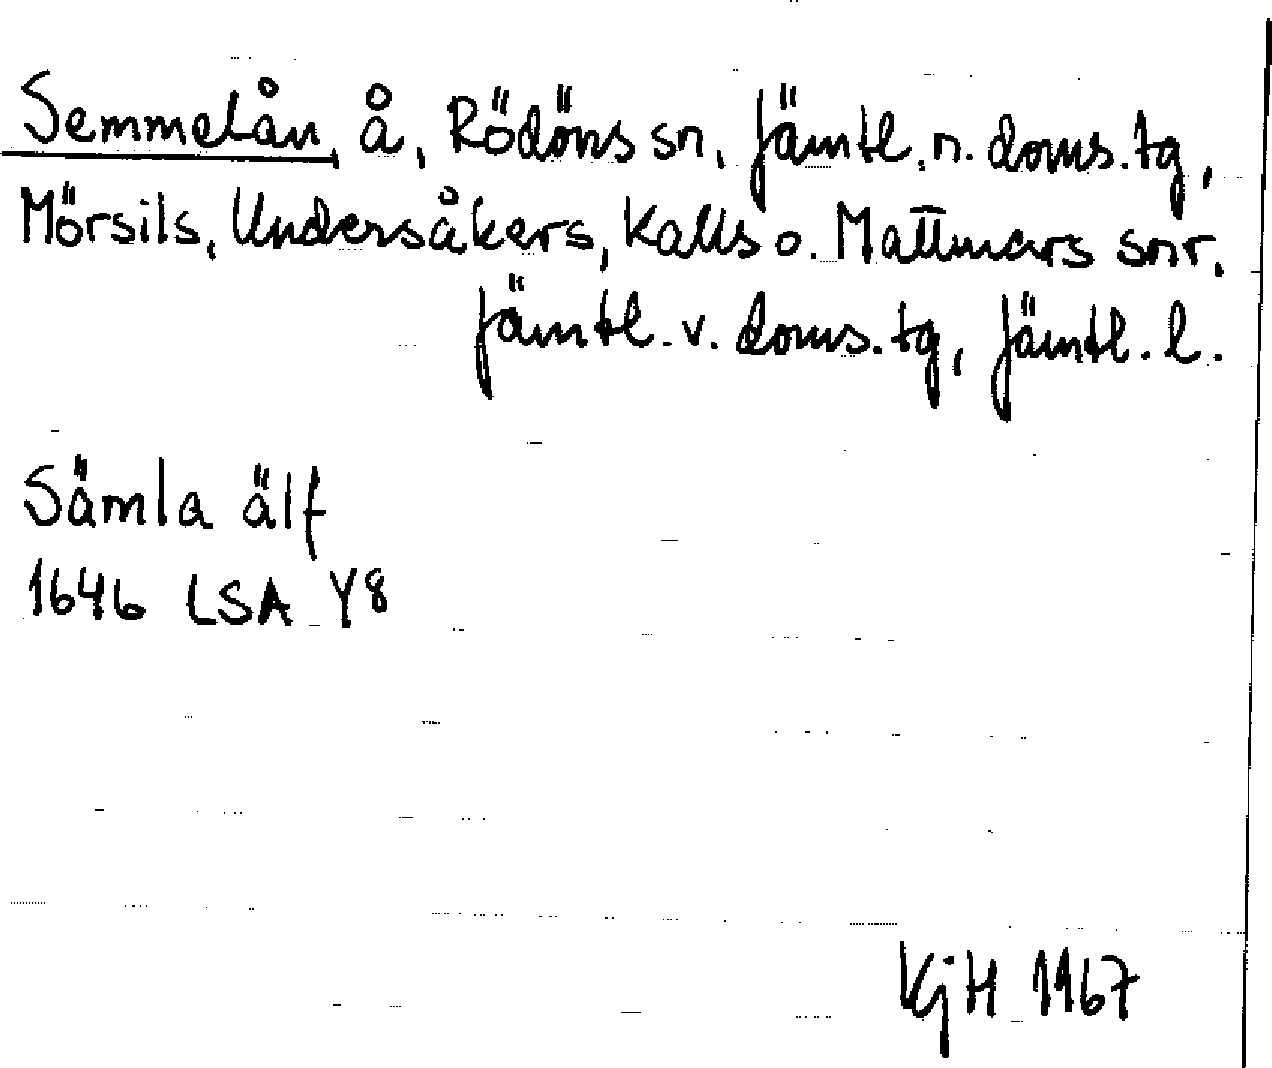 Semmelån, å, Rödöns sn, Jämtl. n. doms. tg,
Mörsils, Undersåkers, Kalls o. Mattmars snr,
Jämtl. v. doms. tg, Jämtl. l.
Sämla älf
1646 LSA Y8
KjH 1967